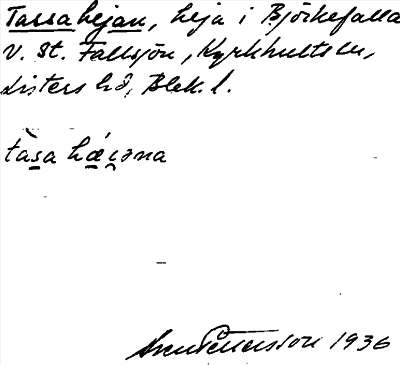 Tassahejan, heja i Björkefalla
V. St. Fallsjön, Kyrkhults sn,
Listers hd, Blek. l.
tàsa hǽi̯əna
Sven Pettersson 1936